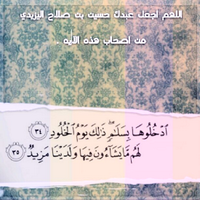 اللهم اجعل عبدك حسين بن صلاح اليزيدي
من اصحاب هذه الآيه ...
ٱدْخُلُوهَا بِسَلَٰمٍ ۖ ذَٰلِكَ يَوْمُ ٱلْخُلُودِ ٣٤
لَهُم مَّا يَشَآءُونَ فِيهَا وَلَدَيْنَا مَزِيدٌ ٣٥